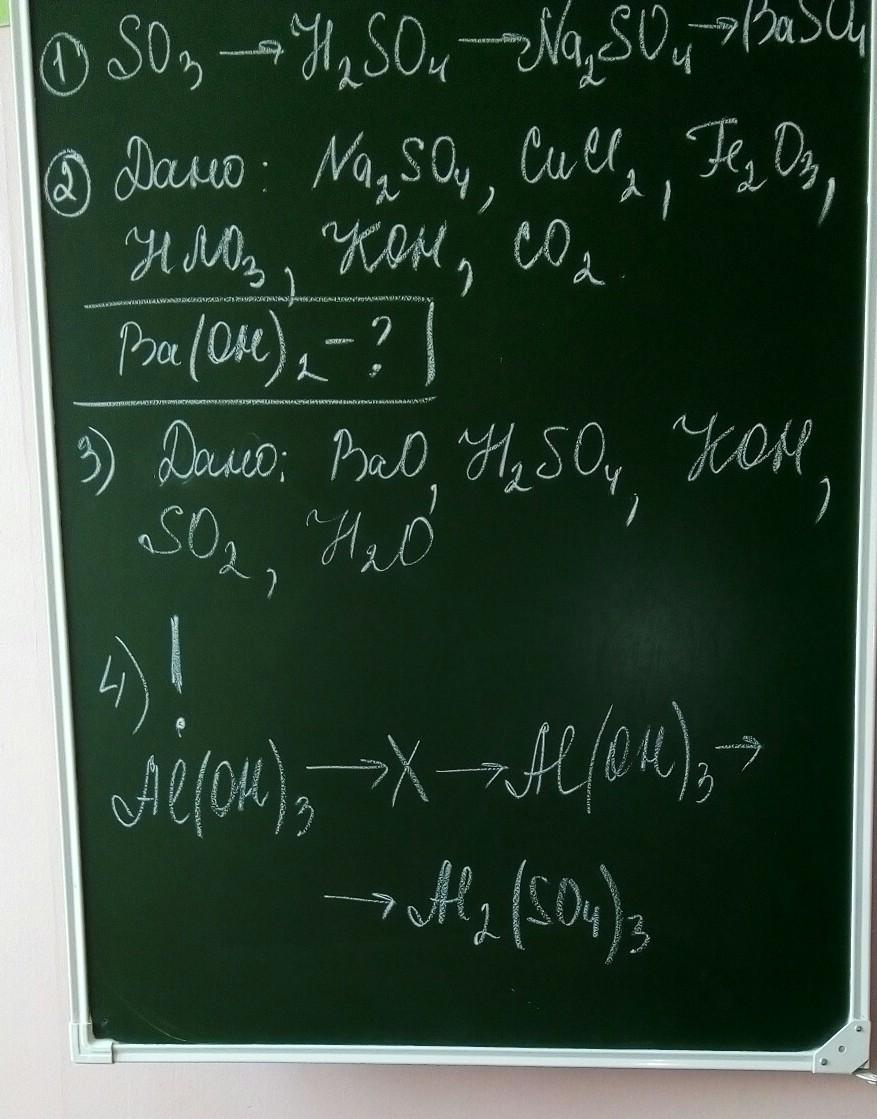 ① SO₃ → H₂SO₄ → Na₂SO₄ → BaSO₄
② Дано: Na₂SO₄, CuCl₂, Fe₂O₃,
HNO₃, KOH, CO₂.
Ba(OH)₂ - ?
3) Дано: BaO, H₂SO₄, KOH,
SO₂, H₂O
4) !
Al(OH)₃ → X → Al(OH)₃ →
→ Al₂(SO₄)₃